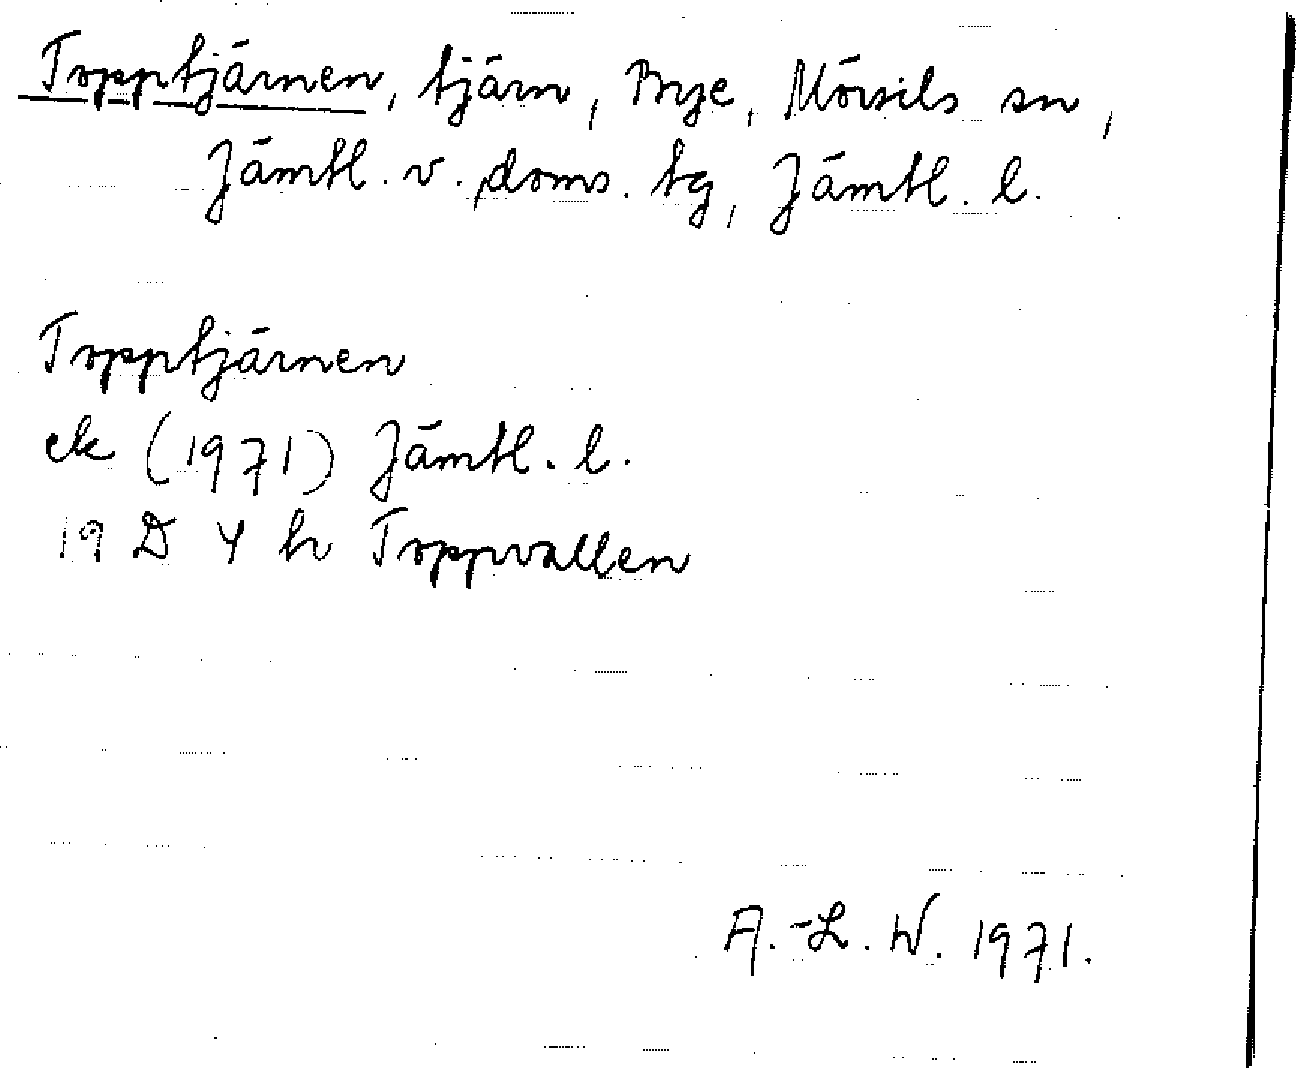 Topptjärnen, tjärn, Bye, Mörsils sn,
Jämtl. v. doms. tg, Jämtl. l.
Topptjärnen
ek (1971) Jämtl. l.
19 D 4 h Toppvallen
A.-L. W. 1971.